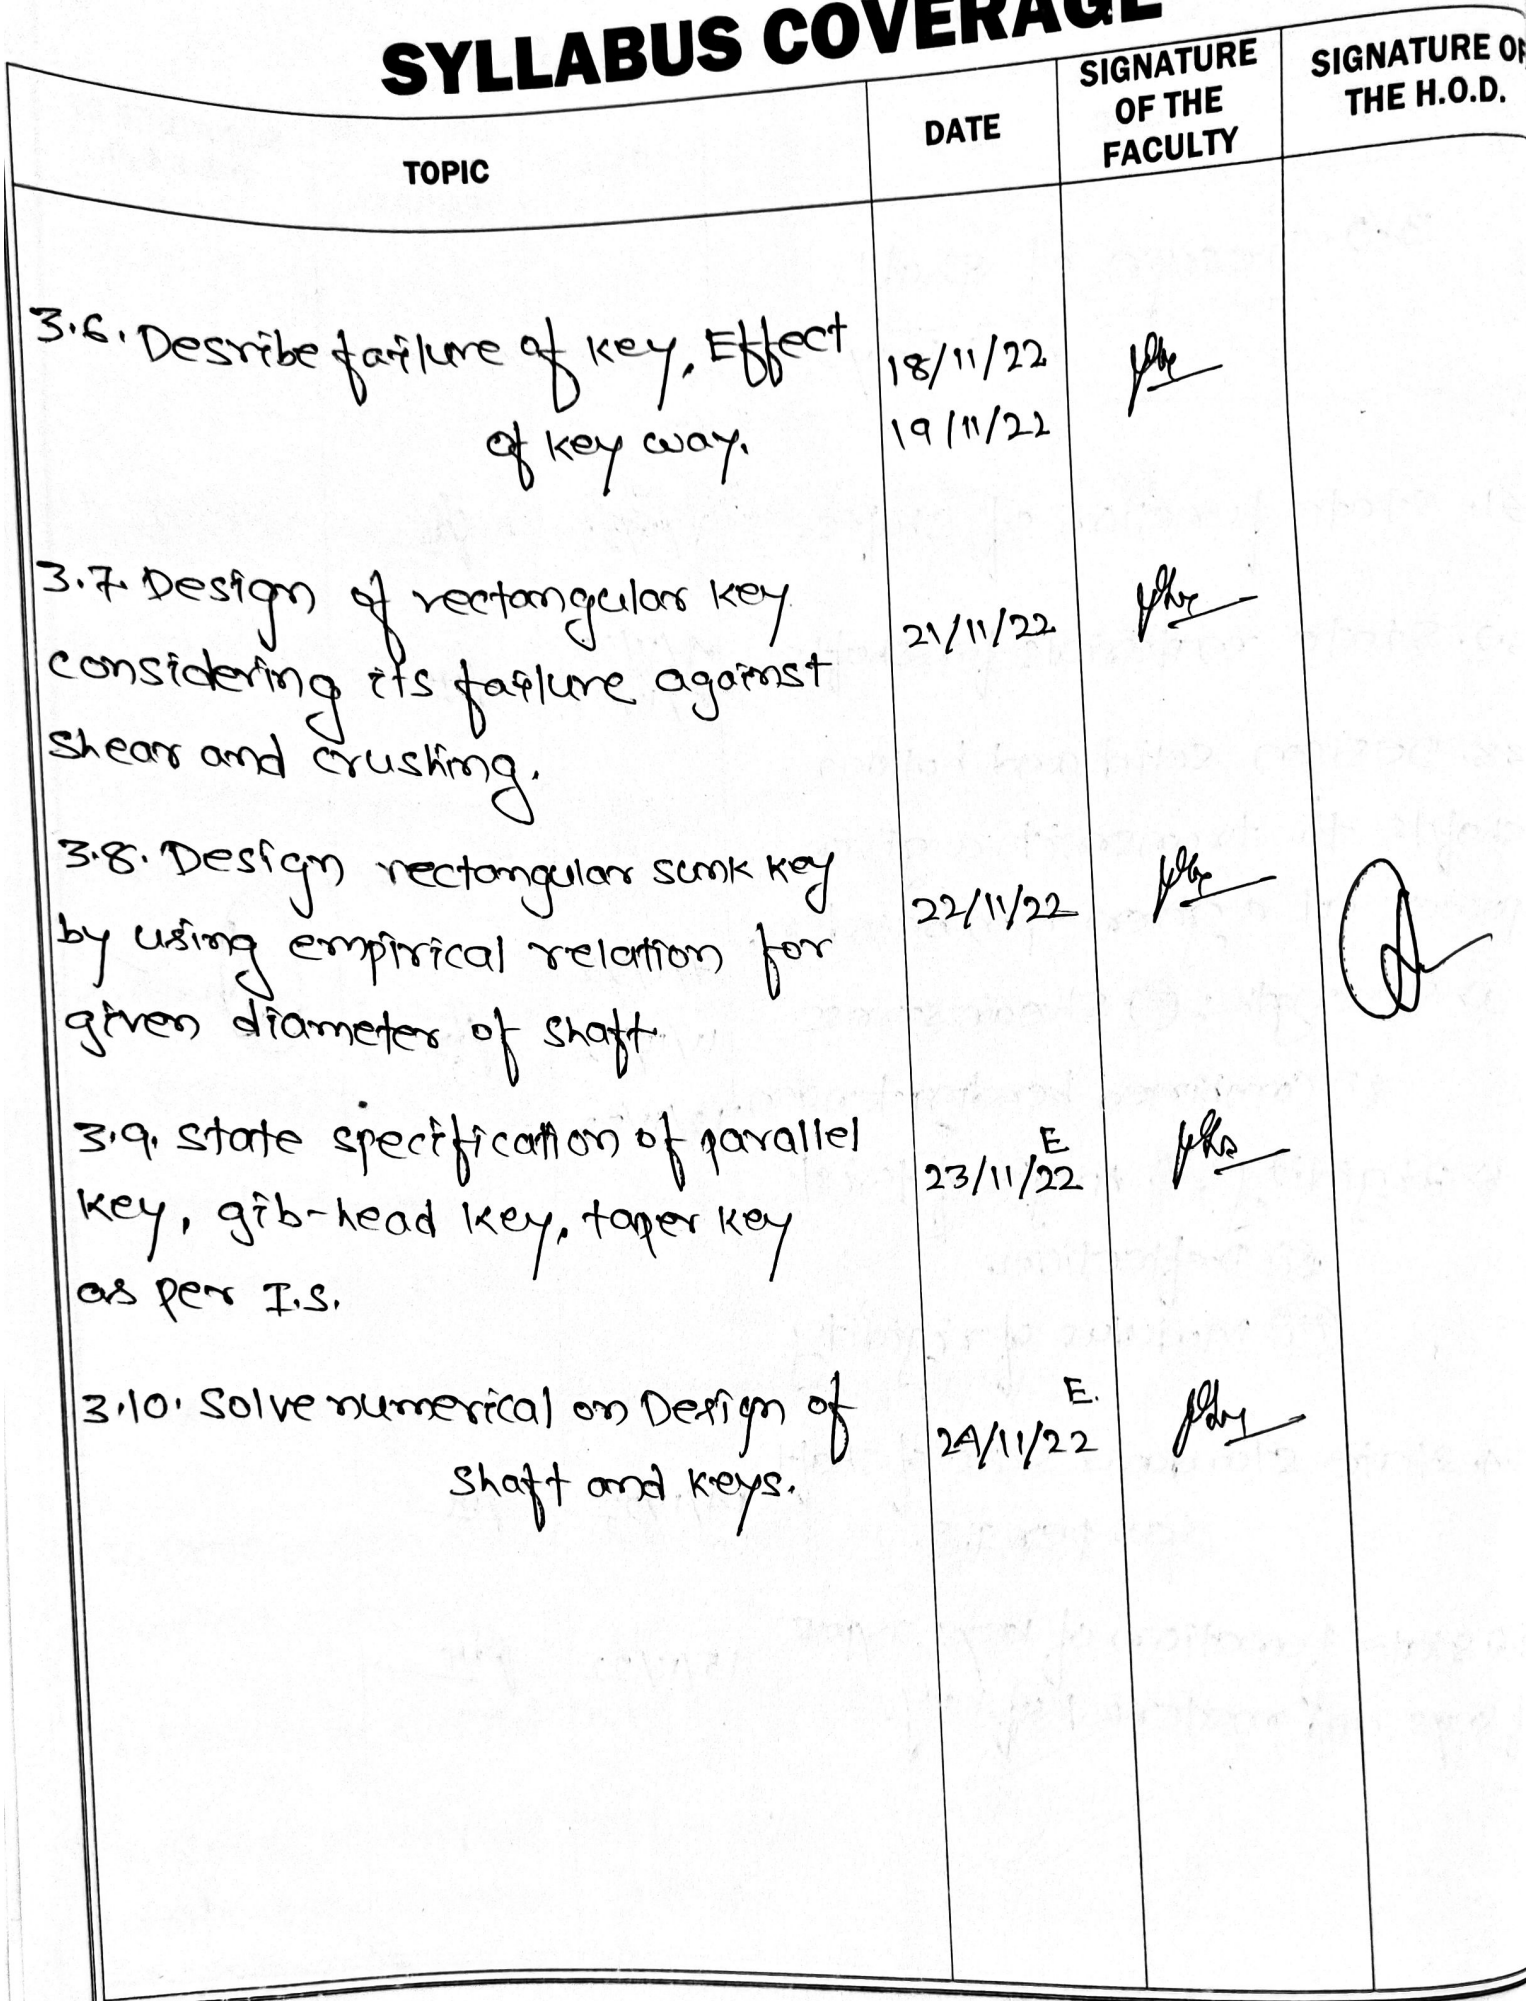 SYLLABUS COVERAGE
TOPIC
DATE
SIGNATURE
OF THE
FACULTY
SIGNATURE OF
THE H.O.D.
3.6. Desribe failure of key, Effect
of key way.
18/11/22
19/11/22
3.7. Design of rectangular key
considering its failure against
shear and crushing.
21/11/22
3.8. Design rectangular sunk key
by using empirical relation for
given diameter of shaft
22/11/22
3.9. State specification of parallel
key, gib-head key, taper key
as per I.S.
E
23/11/22
3.10. Solve numerical on Design of
shaft and keys.
E.
24/11/22